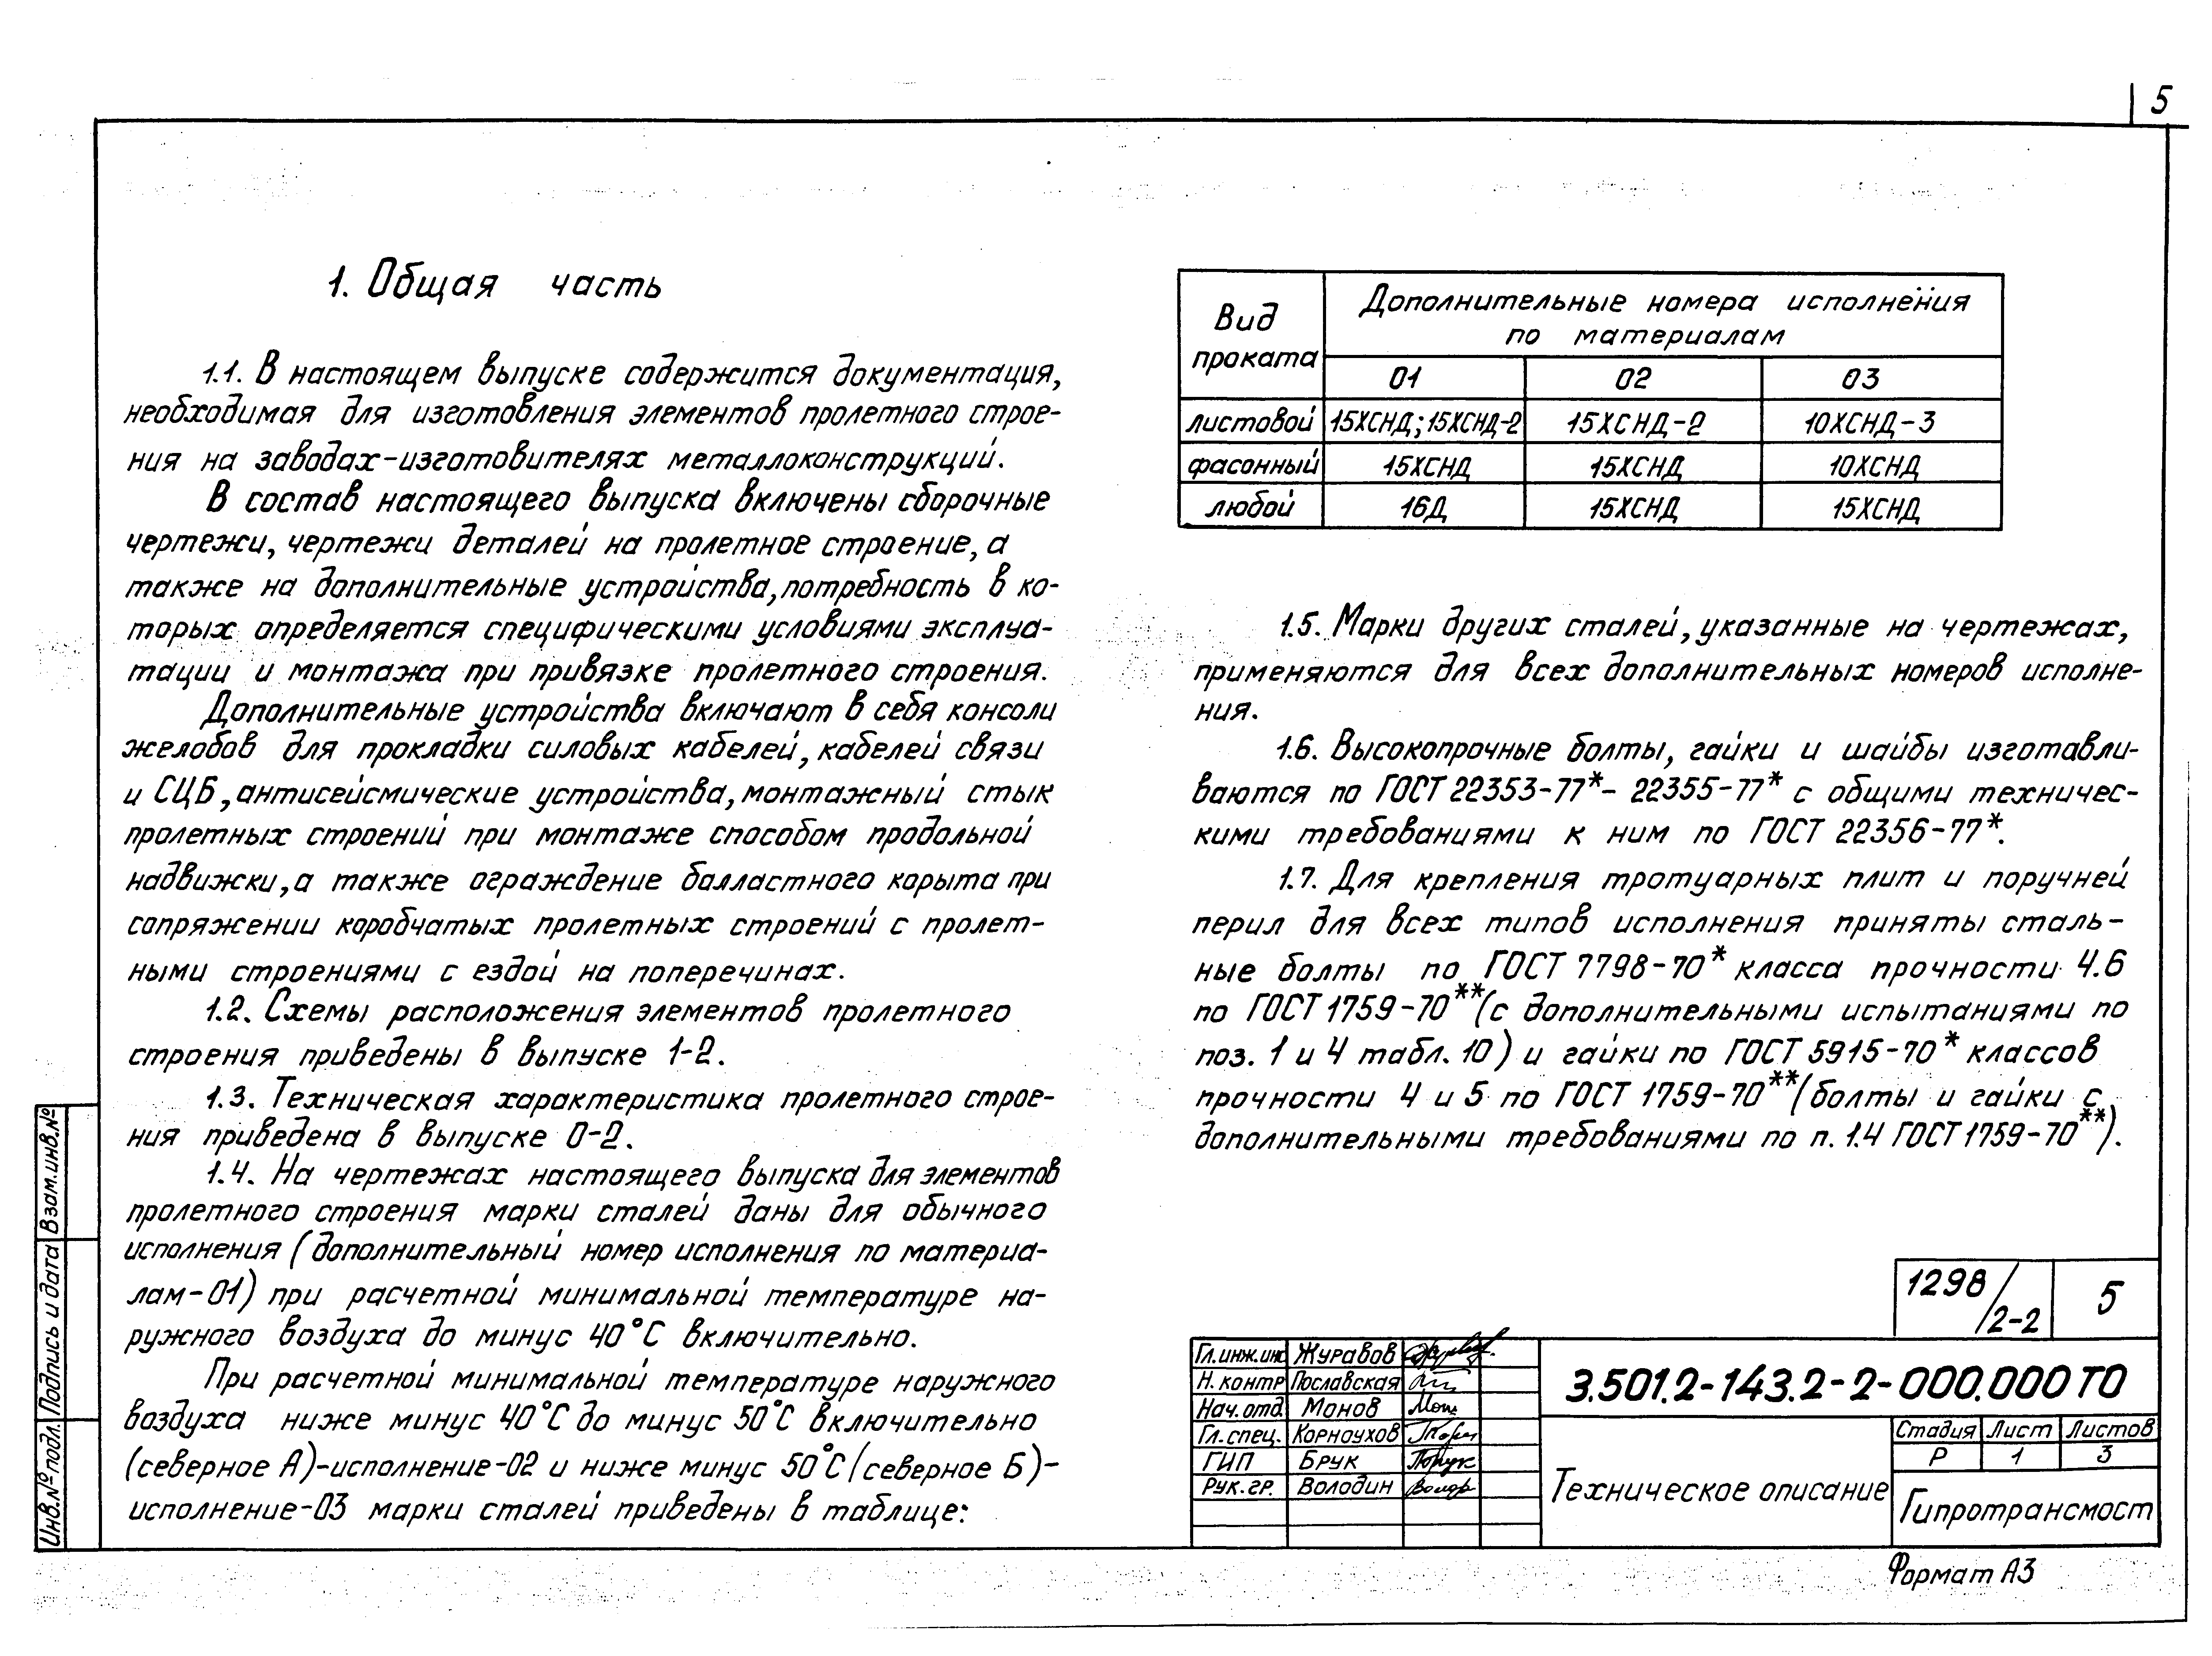 5
1. Общая часть
1.1. В настоящем выпуске содержится документация,
необходимая для изготовления элементов пролетного строе-
ния на заводах-изготовителях металлоконструкций.
В состав настоящего выпуска включены сборочные
чертежи, чертежи деталей на пролетное строение, а
также на дополнительные устройства, потребность в ко-
торых определяется специфическими условиями эксплуа-
тации и монтажа при привязке пролетного строения.
Дополнительные устройства включают в себя консоли
желобов для прокладки силовых кабелей, кабелей связи
и СЦБ, антисейсмические устройства, монтажный стык
пролетных строений при монтаже способом продольной
надвижки, а также ограждение балластного корыта при
сопряжении коробчатых пролетных строений с пролет-
ными строениями с ездой на поперечинах.
1.2. Схемы расположения элементов пролетного
строения приведены в выпуске 1-2.
1.3. Техническая характеристика пролетного строе-
ния приведена в выпуске 0-2.
1.4. На чертежах настоящего выпуска для элементов
пролетного строения марки сталей даны для обычного
исполнения (дополнительный номер исполнения по материа-
лам-01) при расчетной минимальной температуре на-
ружного воздуха до минус 40°С включительно.
При расчетной минимальной температуре наружного
воздуха ниже минус 40°С до минус 50°С включительно
(северное А)-исполнение-02 и ниже минус 50°С (северное Б)-
исполнение-03 марки сталей приведены в таблице:
Вид проката Дополнительные номера исполнения
по материалам
01 02 03
листовой 15ХСНД; 15ХСНД-2 15ХСНД-2 10ХСНД-3
фасонный 15ХСНД 15ХСНД 10ХСНД
любой 16Д 15ХСНД 15ХСНД
1.5. Марки других сталей, указанные на чертежах,
применяются для всех дополнительных номеров исполне-
ния.
1.6. Высокопрочные болты, гайки и шайбы изготавли-
ваются по ГОСТ 22353-77*- 22355-77* с общими техничес-
кими требованиями к ним по ГОСТ 22356-77*.
1.7. Для крепления тротуарных плит и поручней
перил для всех типов исполнения приняты сталь-
ные болты по ГОСТ 7798-70* класса прочности 4.6
по ГОСТ 1759-70** (с дополнительными испытаниями по
поз. 1 и 4 табл. 10) и гайки по ГОСТ 5915-70* классов
прочности 4 и 5 по ГОСТ 1759-70** (болты и гайки с
дополнительными требованиями по п. 1.4 ГОСТ 1759-70**).
1298/2-2 5
Гл.инж.инс Журавов
Н. контр Пославская
Нач.отд. Монов
Гл.спец. Корноухов
ГИП Брук
Рук.гр. Володин
3.501.2-143.2-2-000.000 ТО
Техническое описание
Стадия Лист Листов
Р 1 3
Гипротрансмост
Формат А3
Взам.инв.№
Подпись и дата
Инв.№ подл.